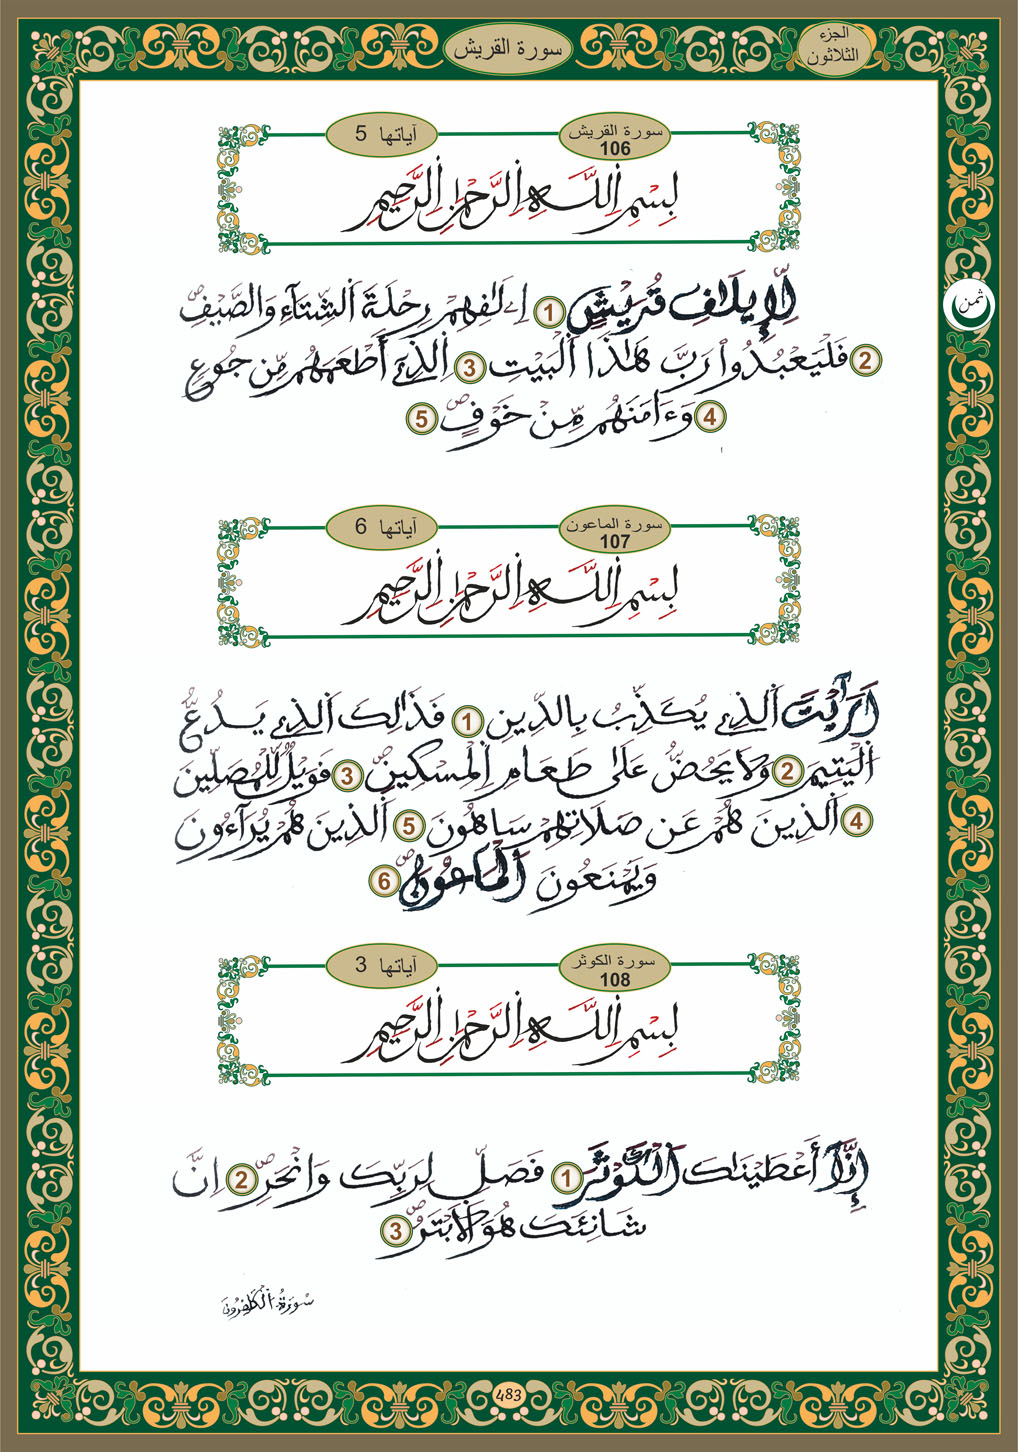 الجزء
الثلاثون
سورة القريش
آياتها 5
سورة القريش
106
بِسْمِ اِللَّهِ اِلرَّحْمَٰنِ اِلرَّحِيمِ
لِإِيلَافِ قُرَيْشٍ 1 إِۦلَٰفِهِمْ رِحْلَةَ اَلشِّتَآءِ وَالصَّيْفِ
ثمن
2 فَلْيَعْبُدُواْ رَبَّ هَٰذَا اَلْبَيْتِ 3 اِلذِےٓ أَطْعَمَهُم مِّن جُوعٍ
4 وَءَامَنَهُم مِّنْ خَوْفٍ 5
آياتها 6
سورة الماعون
107
بِسْمِ اِللَّهِ اِلرَّحْمَٰنِ اِلرَّحِيمِ
اَرَٰٓيْتَ اَلذِے يُكَذِّبُ بِالدِّينِ 1 فَذَٰلِكَ اَلذِے يَدُعُّ
اُلْيَتِيمَ 2 وَلَا يَحُضُّ عَلَىٰ طَعَامِ اِلْمِسْكِينِ 3 فَوَيْلٌ لِّلْمُصَلِّينَ
4 اَلذِينَ هُمْ عَن صَلَاتِهِمْ سَاهُونَ 5 اَلذِينَ هُمْ يُرَآءُونَ
وَيَمْنَعُونَ اَلْمَاعُونَ 6
آياتها 3
سورة الكوثر
108
بِسْمِ اِللَّهِ اِلرَّحْمَٰنِ اِلرَّحِيمِ
إِنَّآ أَعْطَيْنَٰكَ اَلْكَوْثَرَ 1 فَصَلِّ لِرَبِّكَ وَانْحَرِ 2 اِنَّ
شَانِئَكَ هُوَ اَلَابْتَرُ 3
سورة الكافرون
483